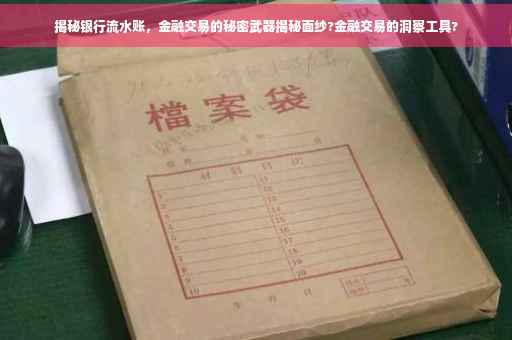 揭秘银行流水账，金融交易的秘密武器揭秘面纱?金融交易的洞察工具?
檔案袋
材料目次
1 11
2 12
3 13
4 14
5 15
6 16
7 17
8 18
9 19
10 20
年 月 日